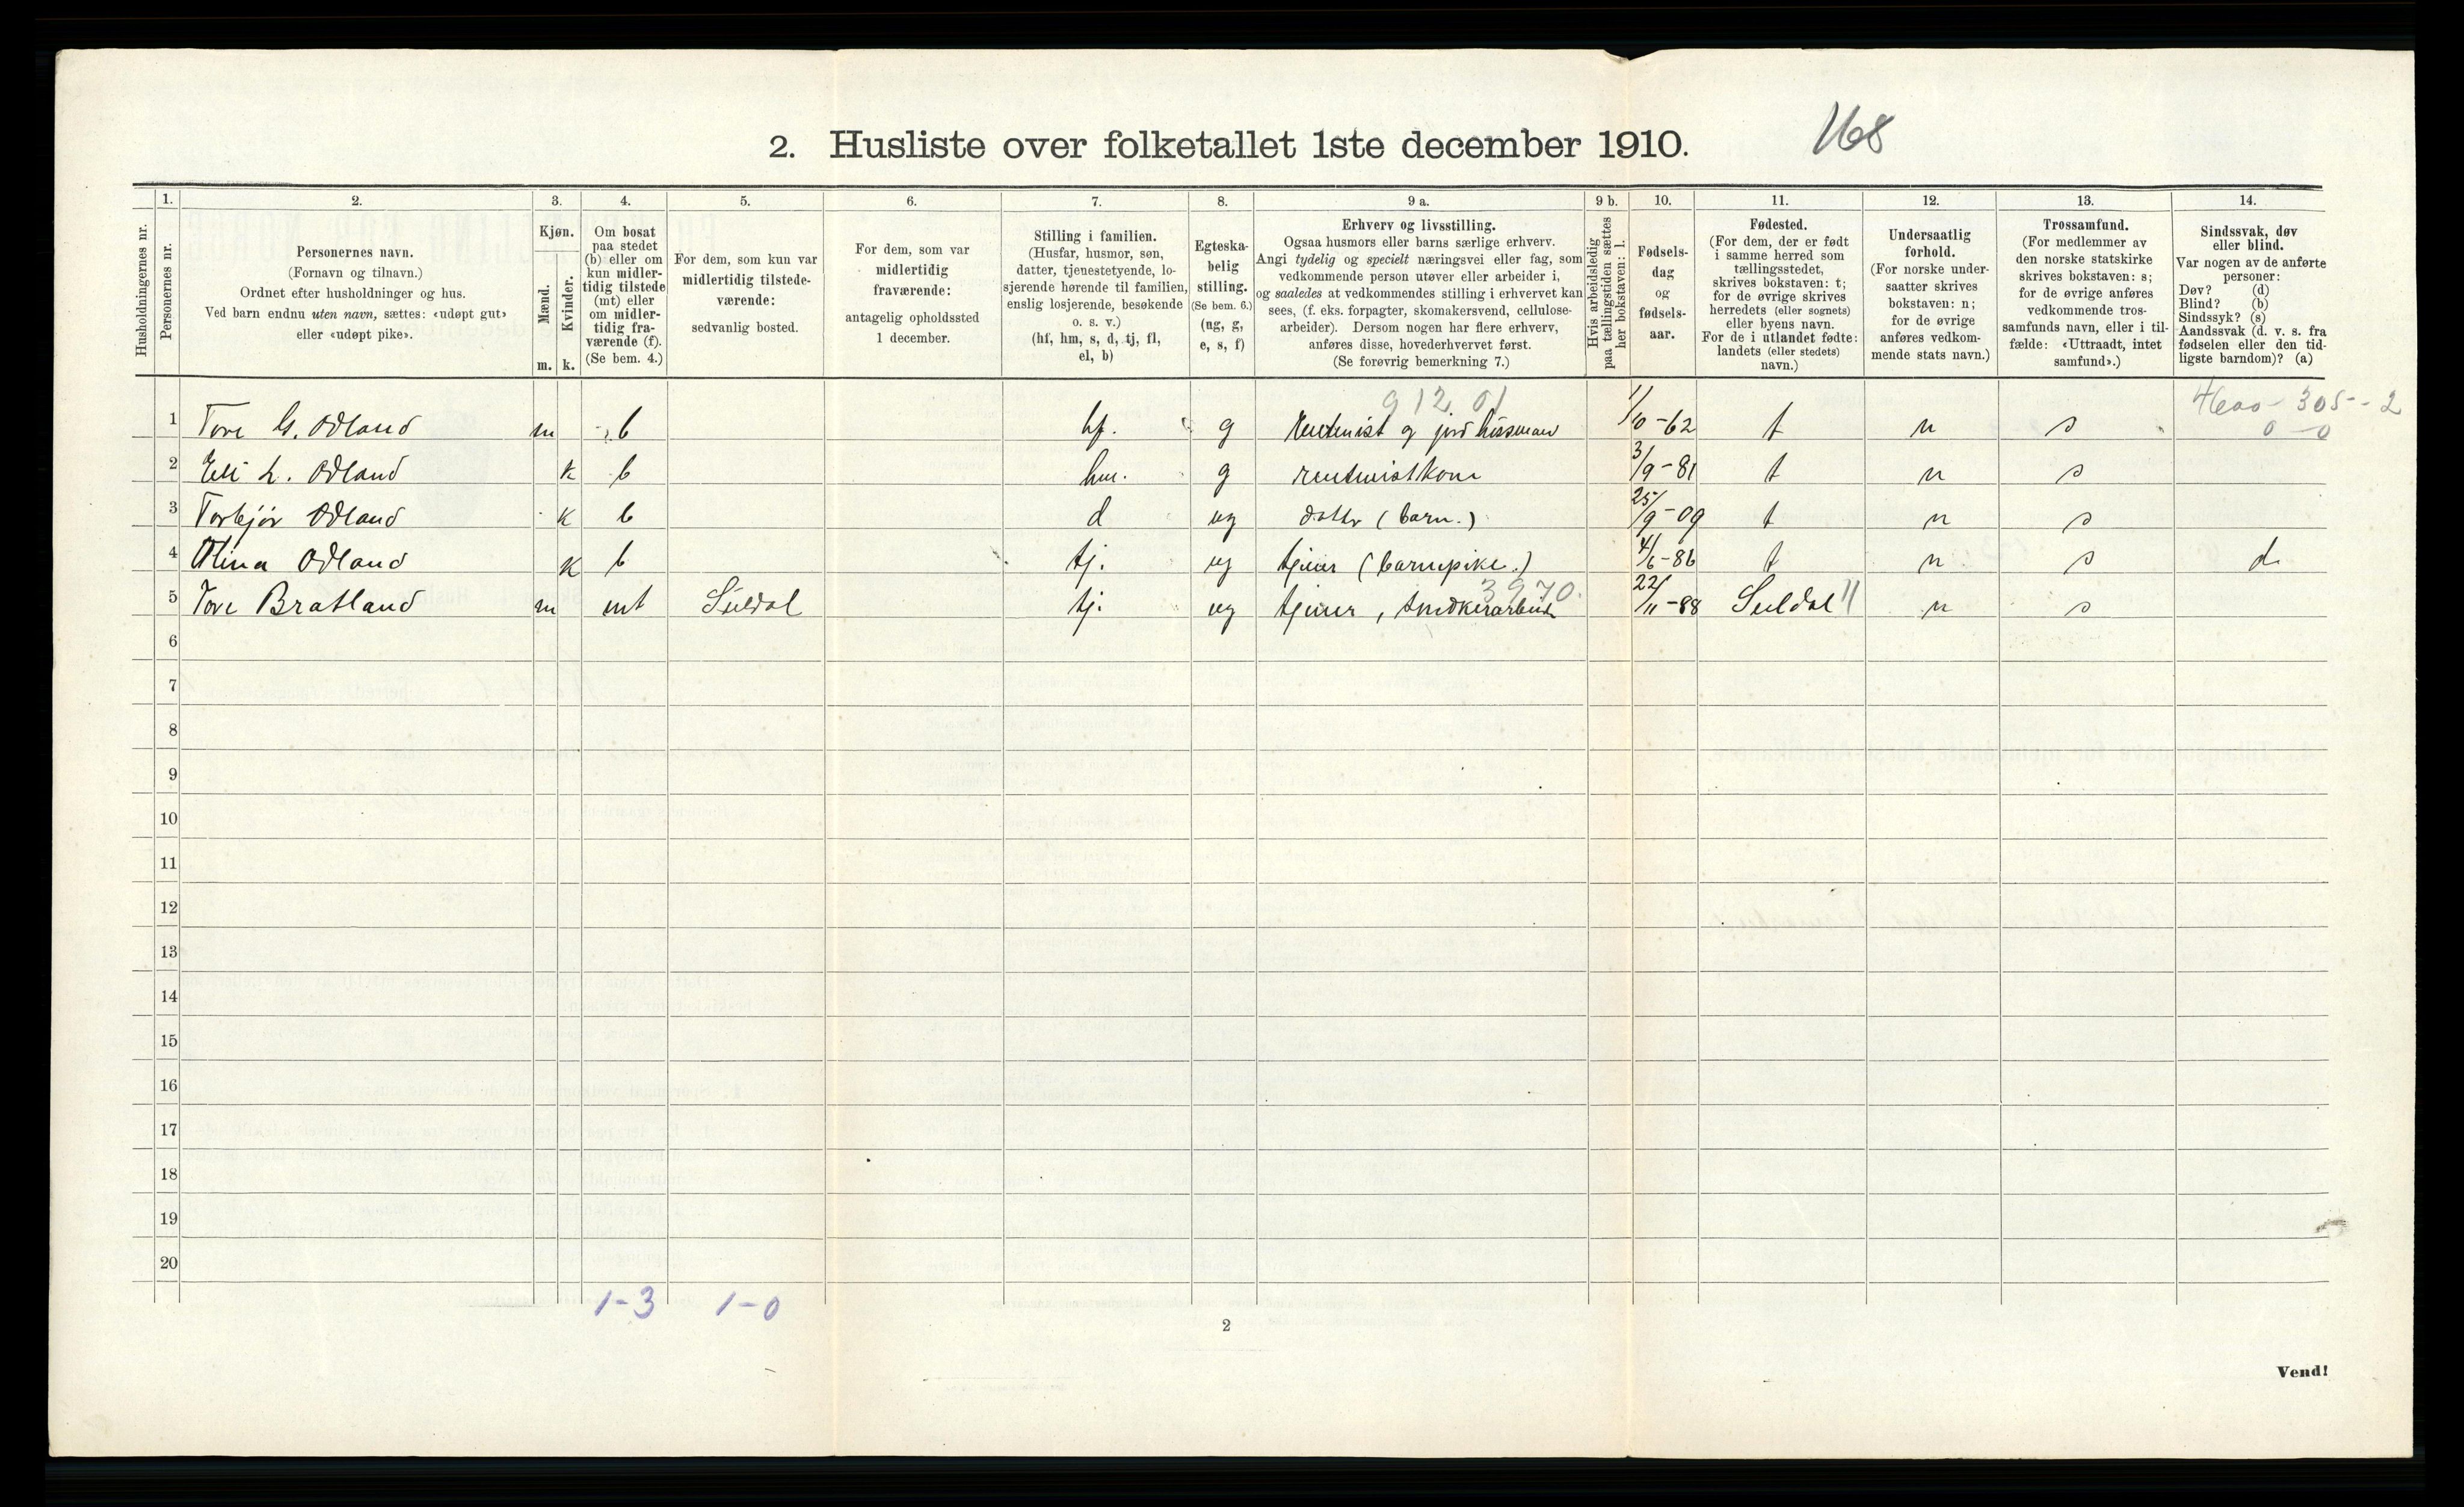 2. Husliste over folketallet 1ste december 1910. 168
Husholdningernes nr.
1.
Personernes nr.
2.
Personernes navn.
(Fornavn og tilnavn.)
Ordnet efter husholdninger og hus.
Ved barn endnu uten navn, sættes: «udøpt gut»
eller «udøpt pike».
3.
Kjøn.
Mænd.
m.
Kvinder.
k.
4.
Om bosat
paa stedet
(b) eller om
kun midler-
tidig tilstede
(mt) eller
om midler-
tidig fra-
værende (f).
(Se bem. 4.)
5.
For dem, som kun var
midlertidig tilstede-
værende:
sedvanlig bosted.
6.
For dem, som var
midlertidig
fraværende:
antagelig opholdssted
1 december.
7.
Stilling i familien.
(Husfar, husmor, søn,
datter, tjenestetyende, lo-
sjerende hørende til familien,
enslig losjerende, besøkende
o. s. v.)
(hf, hm, s, d, tj, fl,
el, b)
8.
Egteska-
belig
stilling.
(Se bem. 6.)
(ug, g,
e, s, f)
9 a.
Erhverv og livsstilling.
Ogsaa husmors eller barns særlige erhverv.
Angi tydelig og specielt næringsvei eller fag, som
vedkommende person utøver eller arbeider i,
og saaledes at vedkommendes stilling i erhvervet kan
sees, (f. eks. forpagter, skomakersvend, cellulose-
arbeider). Dersom nogen har flere erhverv,
anføres disse, hovederhvervet først.
(Se forøvrig bemerkning 7.)
9 b.
Hvis arbeidsledig
paa tællingstiden sættes
her bokstaven: l.
10.
Fødsels-
dag
og
fødsels-
aar.
11.
Fødested.
(For dem, der er født
i samme herred som
tællingsstedet,
skrives bokstaven: t;
for de øvrige skrives
herredets (eller sognets)
eller byens navn.
For de i utlandet fødte:
landets (eller stedets)
navn.)
12.
Undersaatlig
forhold.
(For norske under-
saatter skrives
bokstaven: n;
for de øvrige
anføres vedkom-
mende stats navn.)
13.
Trossamfund.
(For medlemmer av
den norske statskirke
skrives bokstaven: s;
for de øvrige anføres
vedkommende tros-
samfunds navn, eller i til-
fælde: «Uttraadt, intet
samfund».)
14.
Sindssvak, døv
eller blind.
Var nogen av de anførte
personer:
Døv? (d)
Blind? (b)
Sindssyk? (s)
Aandssvak (d. v. s. fra
fødselen eller den tid-
ligste barndom)? (a)
912 01 305 - 2
0 - 0
1 Tore G. Odland m b hf. g Rentenist og jord husmand 1/10-62 t n s
2 Eli L. Odland k b hm. g rentenistkone 3/9-81 t n s
3 Torbjør Odland k b d ug datter (barn.) 25/9-09 t n s
4 Olina Odland k b tj. ug tjener (barnepike.) 4/6-86 t n s d.
3970.
5 Tore Bratland m mt Suldal tj. ug tjener, snedkerarbeide 22/11-88 Suldal 11 n s
6
7
8
9
10
11
12
13
14
15
16
17
18
19
20
1-3 1-0
2
Vend!